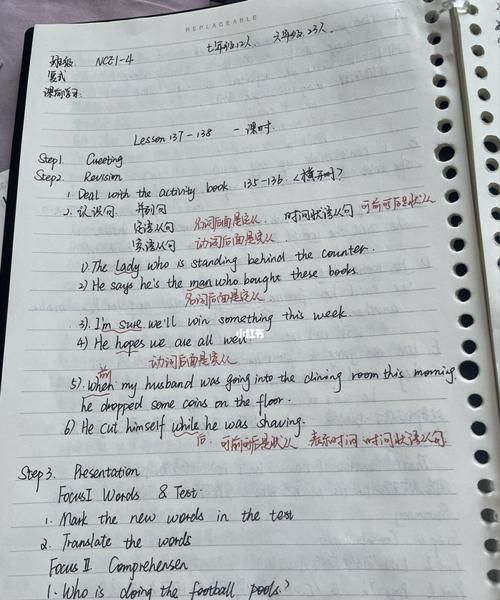 REPLACEABLE
七年级12人、六年级23人
班级 NCE1-4
复式
课前学习:
Lesson 137-138 一课时
Step1. Greeting
Step2. Revision
1. Deal with the activity book 135-136.
2. 认识句. 并列句
定语从句 名词后面是定从 时间状语从句 可前可后是状从
宾语从句 动词后面是宾从.
1) The Lady who is standing behind the counter.
2) He says he's the man who bought these books.
名词后面是定从.
3). I'm sure we'll win something this week.
小红书
4) He hopes we are all well.
动词后面是宾从
前
5). When my husband was going into the dining room this morning.
he dropped some coins on the floor.
6) He cut himself while he was shaving.
后. 可前可后是状从 表示时间 时间状语从句.
Step 3. Presentation
Focus I Words & Test.
1. Mark the new words in the test
2. Translate the words
Focus II Comprehensen
1. Who is doing the football pools?